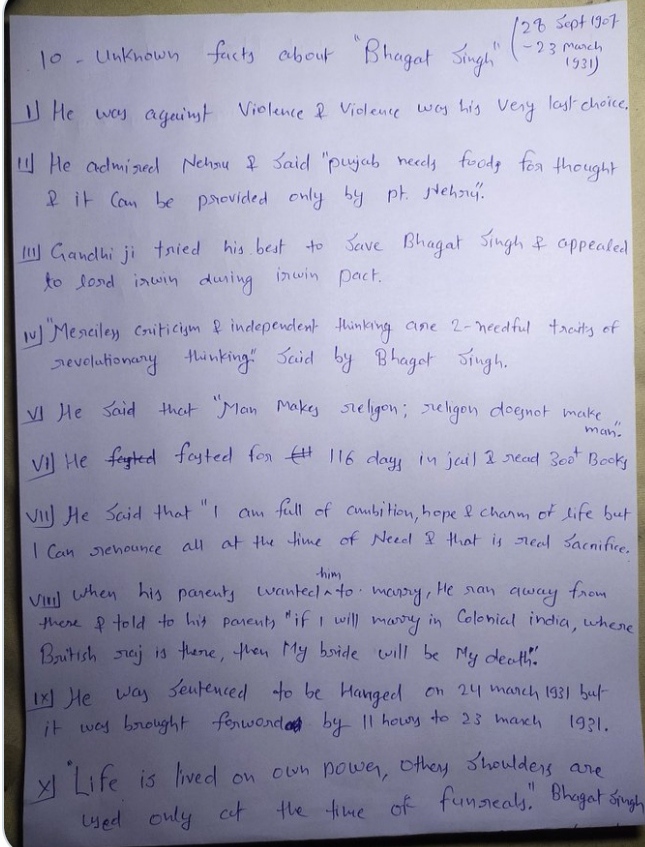 10 - Unknown facts about "Bhagat Singh" (28 Sept 1907
- 23 march
1931)
I] He was against Violence & Violence was his Very last choice.
II] He admired Nehru & said "punjab needs foods for thought
& it Can be provided only by pt. Nehru".
III] Gandhi ji tried his best to save Bhagat Singh & appealed
to lord irwin during irwin pact.
IV] "Merciless criticism & independent thinking are 2-needful traits of
revolutionary thinking" Said by Bhagat Singh.
V] He said that "Man Makes religon; religon doesnot make
man".
VI] He fasted fasted for 116 days in jail & read 300+ Books
VII] He Said that "I am full of ambition, hope & charm of life but
I Can renounce all at the time of Need & that is real Sacrifice.
VIII] When his parents wanted ^ him to marry, He ran away from
there & told to his parents "if I will marry in Colonial india, where
British raj is there, then My bride will be My death".
IX] He was Sentenced to be Hanged on 24 march 1931 but
it was brought forward by 11 hours to 23 march 1931.
X] "Life is lived on own power, others shoulders are
used only at the time of funerals." Bhagat Singh